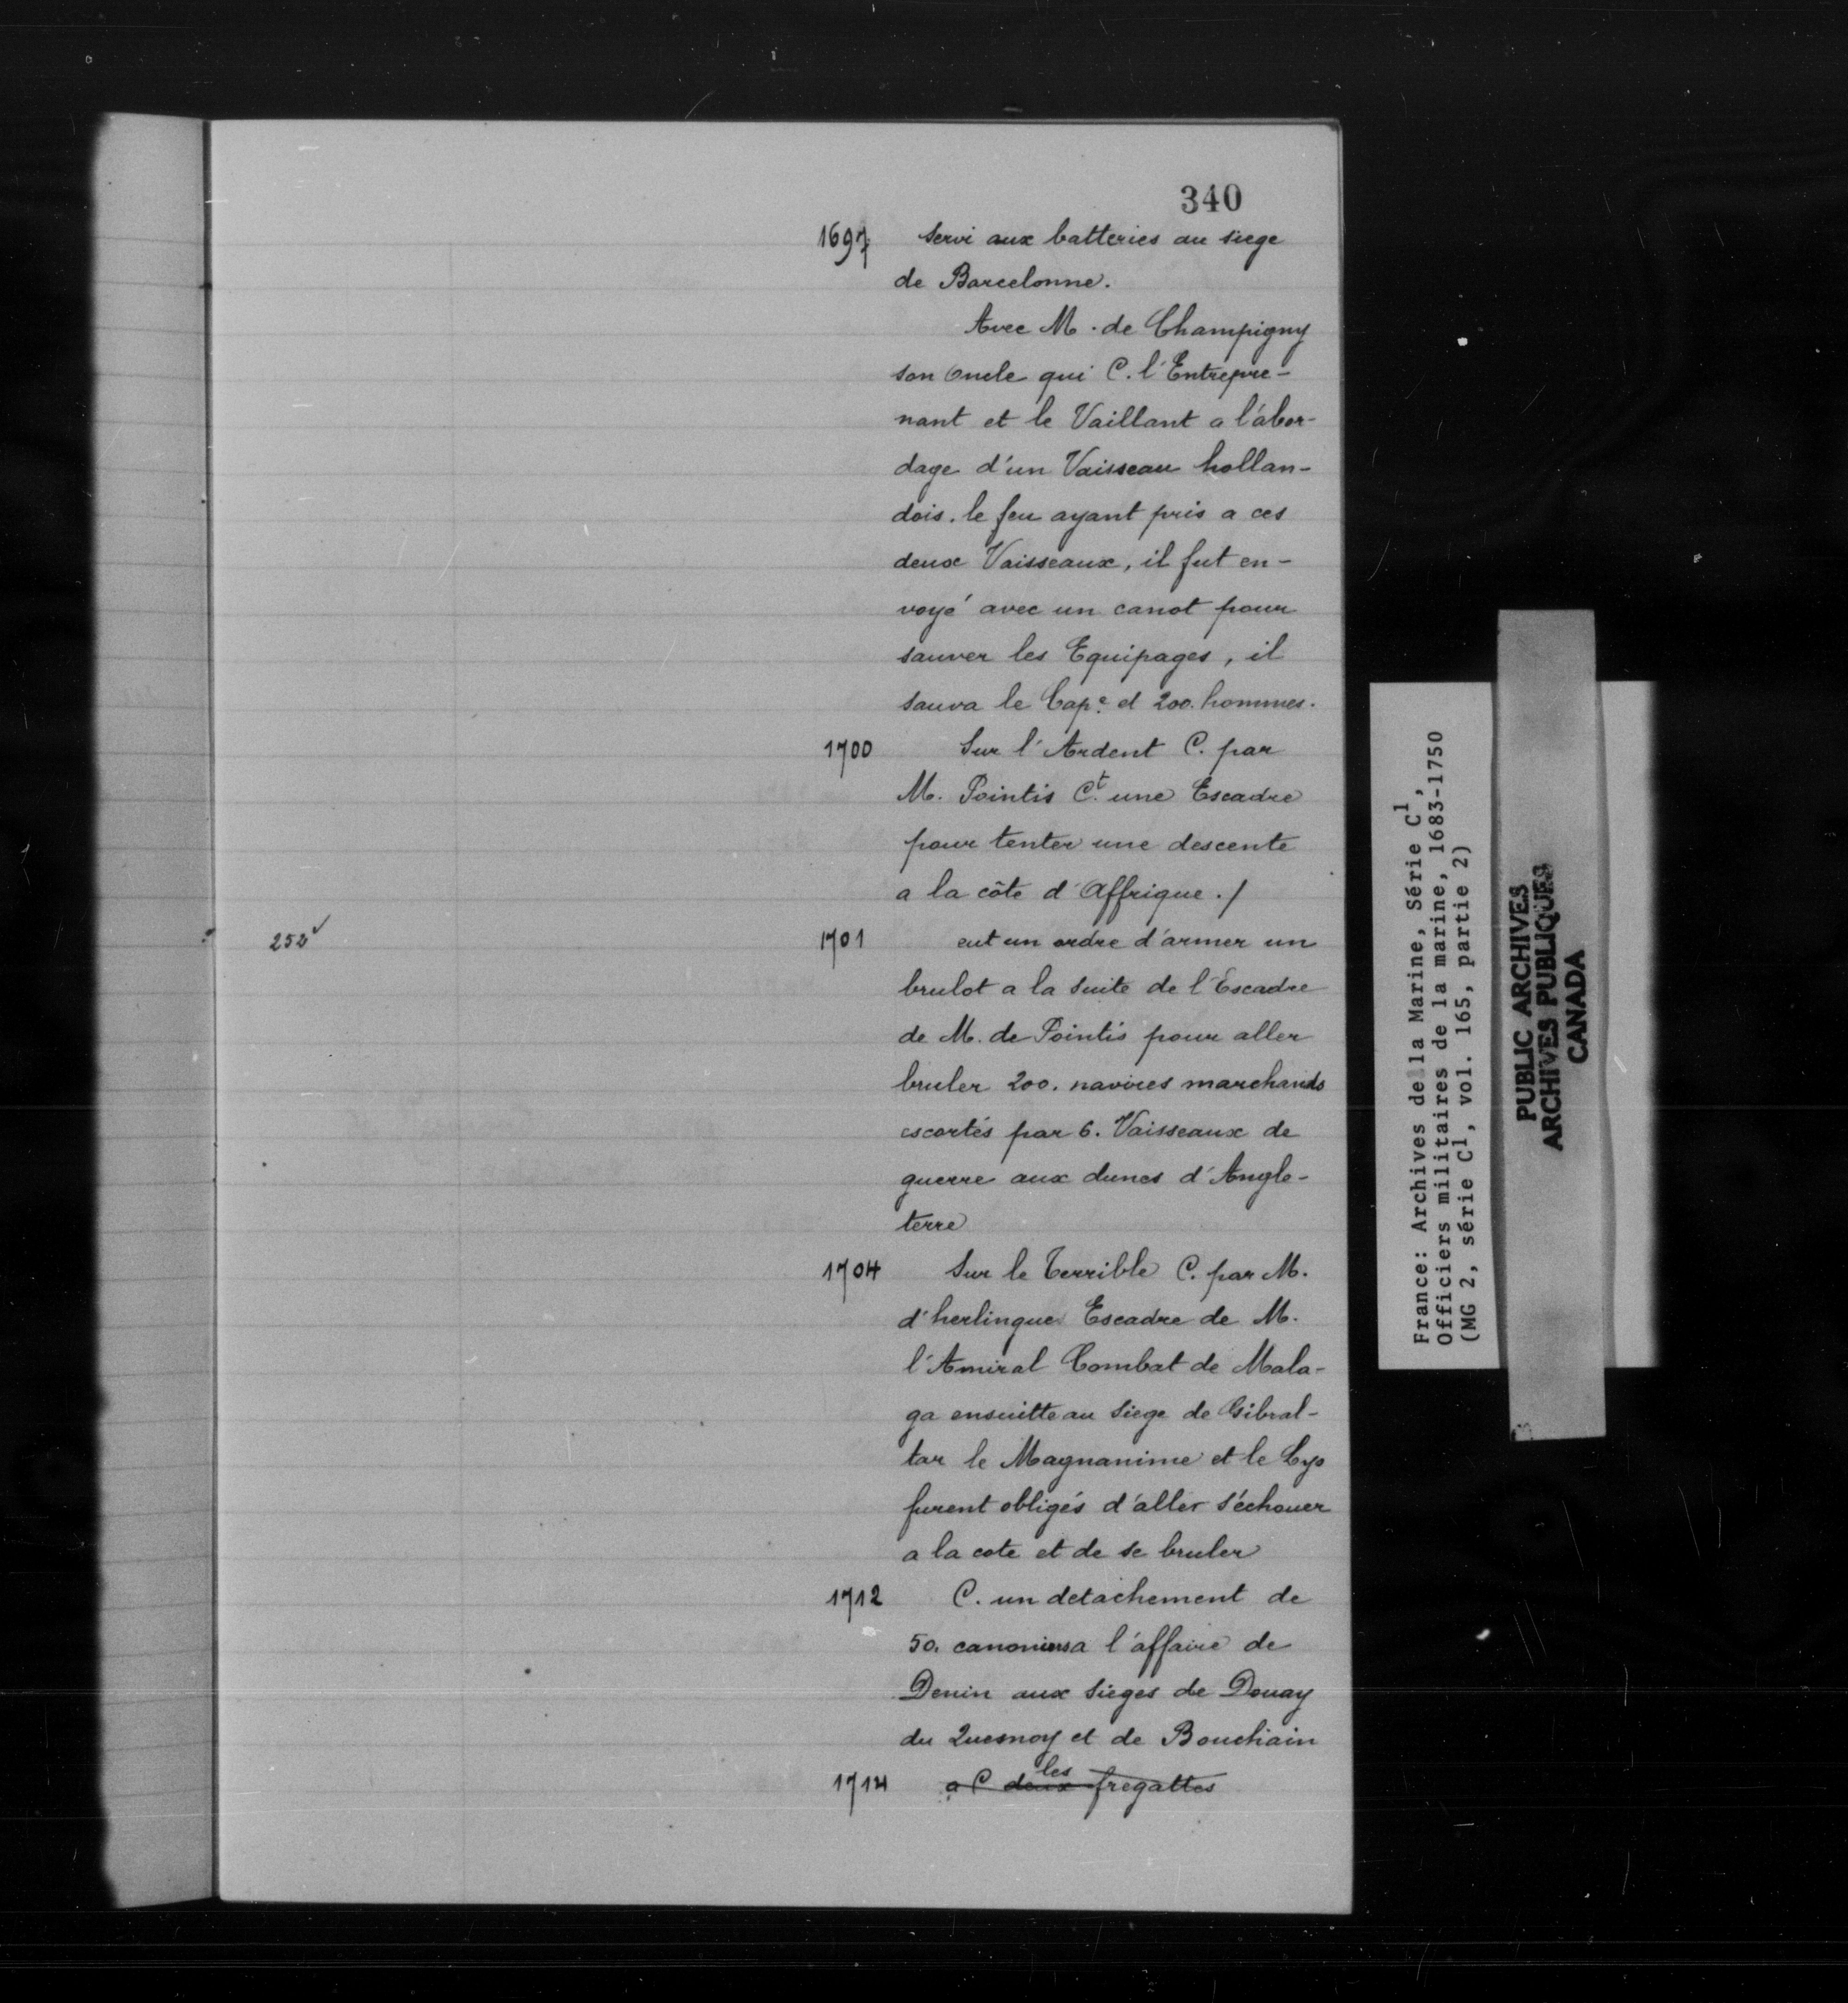 340
1697 Servi aux batteries au siege
de Barcelonne.
Avec M. de Champigny
son Oncle qui C. l'Entrepre-
nant et le Vaillant a l'abor-
dage d'un Vaisseau hollan-
dois. le feu ayant pris a ces
deux Vaisseaux, il fut en-
voyé avec un canot pour
sauver les Equipages, il
sauva le Cap.e et 200. hommes.
1700 Sur l'Ardent C. par
M. Pointis C.t une Escadre
pour tenter une descente
a la côte d'Affrique./
252v 1701 eut un ordre d'armer un
brulot a la suite de l'Escadre
de M. de Pointis pour aller
bruler 200. navires marchands
escortés par 6. Vaisseaux de
guerre aux dunes d'Angle-
terre
1704 Sur le Terrible C. par M.
d'herlingue Escadre de M.
l'Amiral Combat de Mala-
ga ensuitte au Siege de Gibral-
tar le Magnanime et le Lys
furent obligés d'aller s'échouer
a la cote et de se bruler
1712 C. un detachement de
50. canoniers a l'affaire de
Denin aux sieges de Douay
du Quesnoy et de Bouchain
1714 a C deux les fregattes
France: Archives de la Marine, Série C1,
Officiers militaires de la marine, 1683-1750
(MG 2, série C1, vol. 165, partie 2)
PUBLIC ARCHIVES
ARCHIVES PUBLIQUES
CANADA